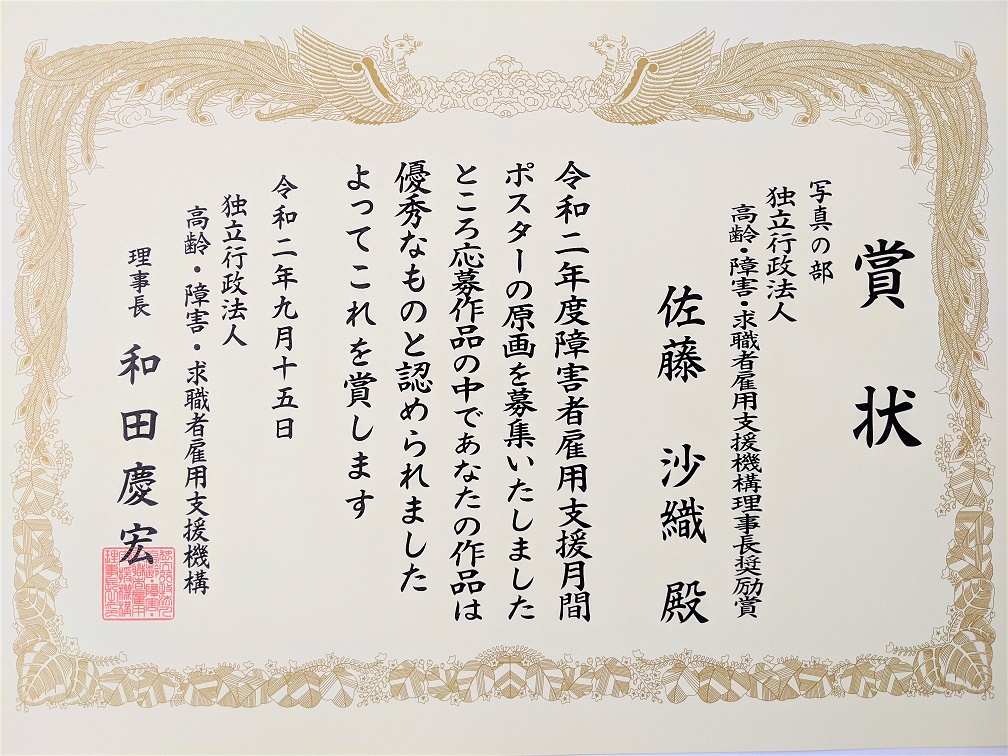 賞状
写真の部
独立行政法人
高齢・障害・求職者雇用支援機構理事長奨励賞
佐藤 沙織 殿
令和二年度障害者雇用支援月間
ポスターの原画を募集いたしました
ところ応募作品の中であなたの作品は
優秀なものと認められました
よってこれを賞します
令和二年九月十五日
独立行政法人
高齢・障害・求職者雇用支援機構
理事長 和田慶宏